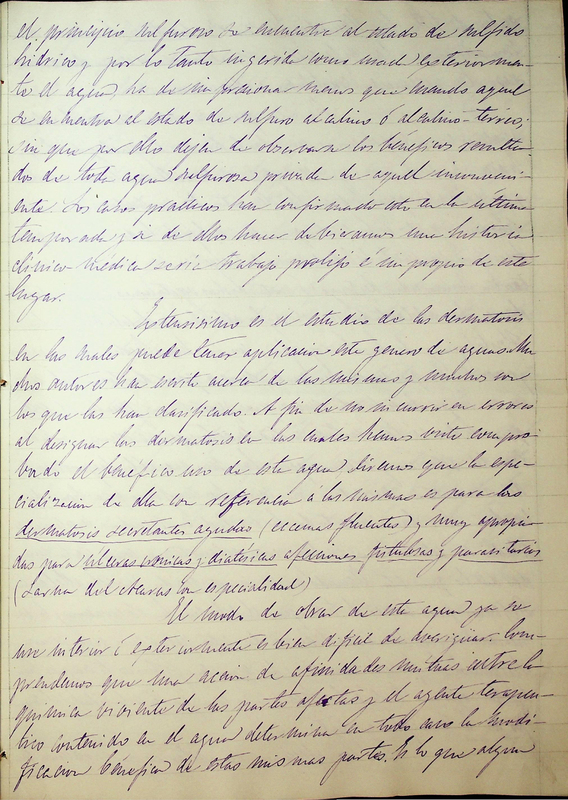 el principio sulfuroso se encuentra al estado de sulfido
hidrico y por lo tanto ingerido como usado exteriormen-
te el agua ha de impresionar menos que cuando aquel
se encuentra al estado de sulfuro alcalino ó alcalino-terreo;
sin que por ellos dejen de observarse los benéficos resulta-
dos de toda agua sulfurosa privada de aquell inconveni-
ente. Los casos practicos han confirmado esto en la última
temporada y si de ellos hacer debieramos una historia
clinico-médica seria trabajo prolijo é impropio de este
lugar.
Extensisimo es el estudio de las dermatosis
en las cuales puede tener aplicacion este genero de aguas. Mu-
chos autores han escrito acerca de las mismas y muchos son
los que las han clasificado. A fin de no incurrir en errores
al designar las dermatosis en las cuales hemos visto compro-
bado el benéfico uso de este agua, diremos que la espe-
cializacion de ella con referencia á las mismas es para las
dermatosis secretantes agudas (eczemas fluentes) y muy apropia-
das para ulceras crónicas y diatésicas afecciones pustulosas y parasitarias
(sarna del Acarus con especialidad)
El modo de obrar de este agua ya se
use interior ó exteriormente es bien dificil de averiguar. Com-
prendemos que una accion de afinidades mutuas entre la
química viviente de las partes afectas y el agente terapeu-
tico contenido en el agua determina en todo caso la modi-
ficacion benefica de estas mismas partes. Es lo que algun